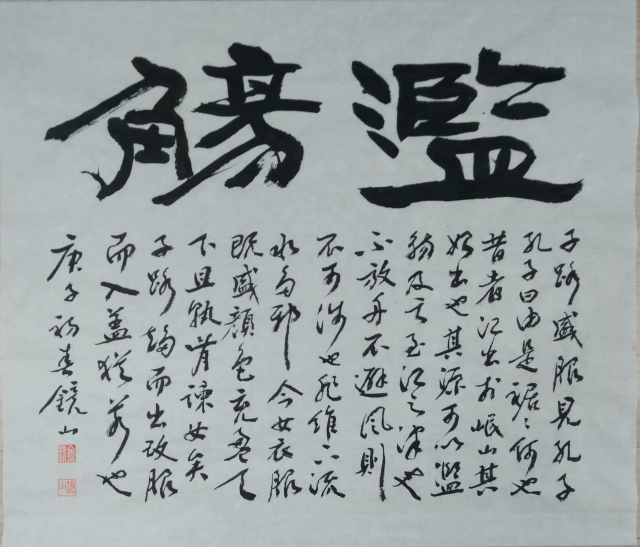 濫觴
子路盛服見孔子
孔子曰由是裾々何也
昔者江出於岷山其
始出也其源可以濫
觴及其至江之津也
不放舟不避風則
不可涉也非維下流
水多邪今女衣服
既盛顏色充盈天
下且孰肯諫女矣
子路趨而出改服
而入蓋猶若也
庚子初春鏡山